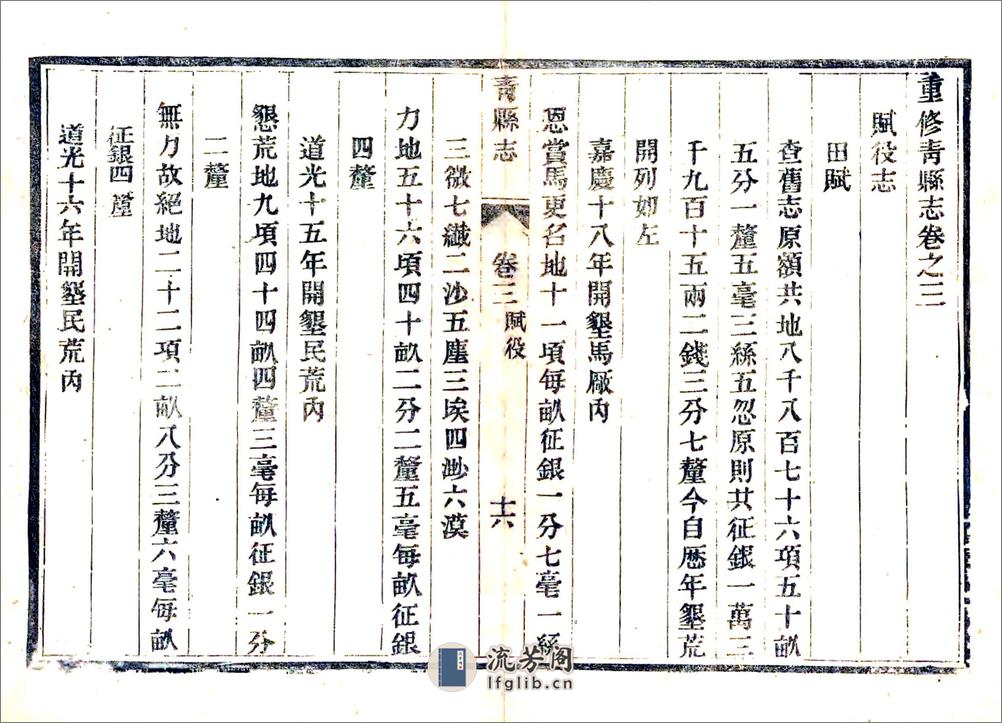 重修青縣志卷之三
賦役志
田賦
查舊志原額共地八千八百七十六項五十畝
五分一釐五毫三絲五忽原則共征銀一萬二
千九百十五兩二錢三分七釐今自歷年墾荒
開列如左
嘉慶十八年開墾馬厰內
恩賞馬更名地十一項每畝征銀一分七毫一絲
青縣志 卷三 賦役 十六
三微七纖二沙五塵三埃四渺六漠
力地五十六頃四十畝二分二釐五毫每畝征銀
四釐
道光十五年開墾民荒內
懇荒地九項四十四畝四釐三毫每畝征銀一分
二釐
無力故絕地二十二項二畝八分三釐六毫每畝
征銀四釐
道光十六年開墾民荒內
流芳閣
lfglib.cn